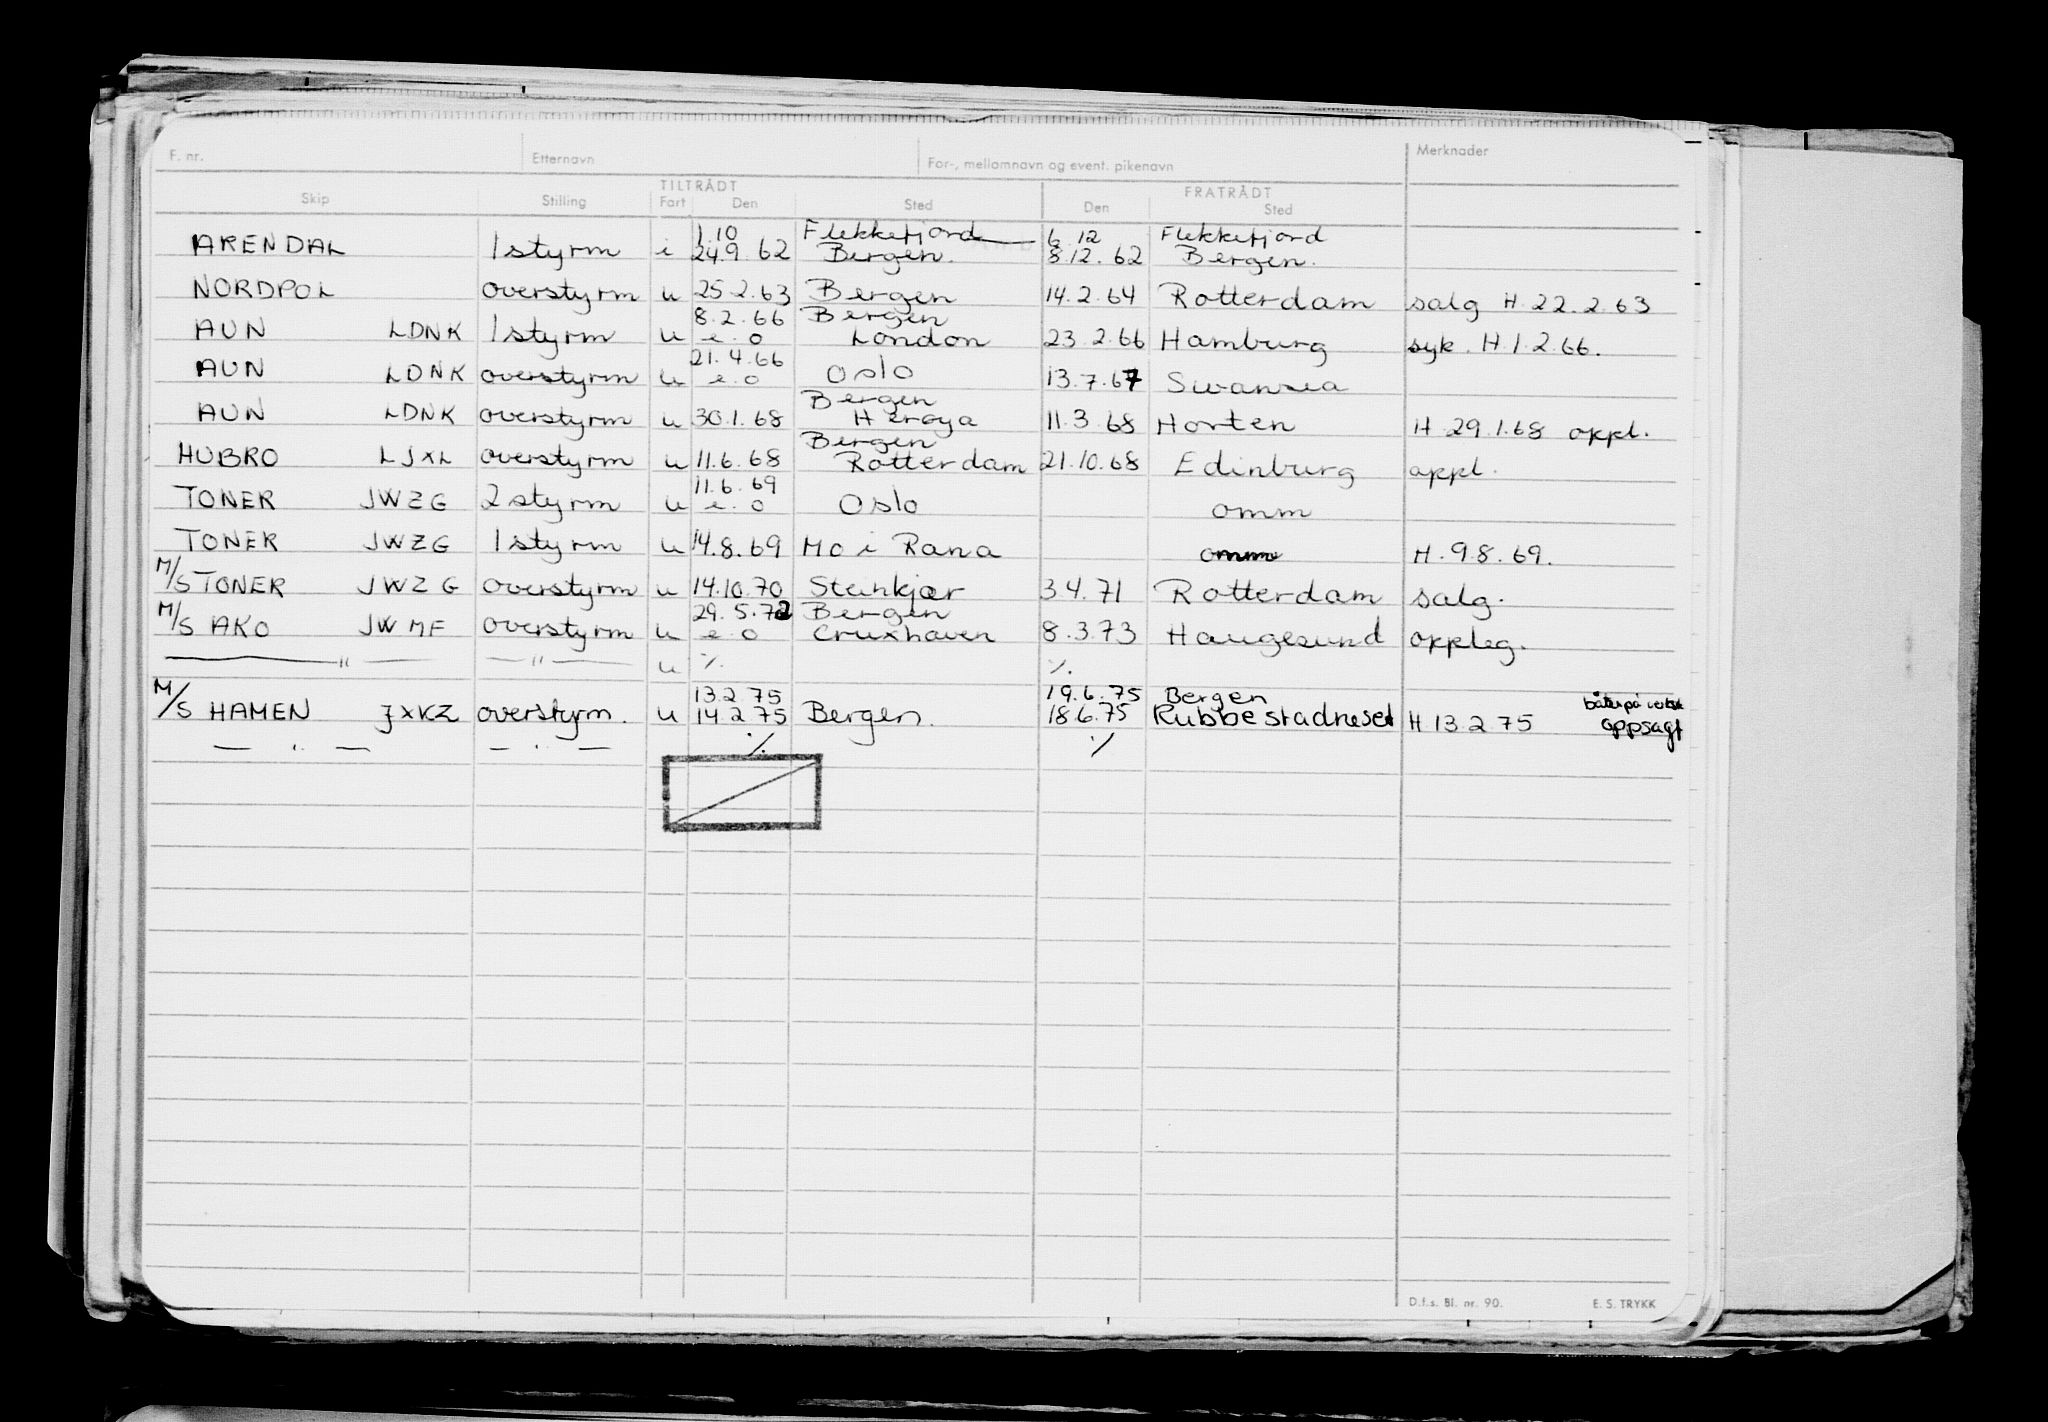 F. nr. Etternavn For-, mellomnavn og event. pikenavn Merknader
TILTRÅDT FRATRÅDT
Skip Stilling Fart Den Sted Den Sted
1.10 Flekkefjord 6.12 Flekkefjord
ARENDAL 1styrm i 24.9.62 Bergen. 8.12.62 Bergen.
NORDPOL overstyrm u 25.2.63 Bergen 14.2.64 Rotterdam salg H.22.2.63
8.2.66 Bergen
AUN LDNK 1styrm u e.o London 23.2.66 Hamburg syk. H.1.2.66.
21.4.66
AUN LDNK overstyrm u e.o Oslo 13.7.67 Swansea
Bergen
AUN LDNK overstyrm u 30.1.68 Herøya 11.3.68 Horten H.29.1.68 oppl.
Bergen
HUBRO LJXL overstyrm u 11.6.68 Rotterdam 21.10.68 Edinburg oppl.
11.6.69
TONER JWZG 2styrm u e.o Oslo omm
TONER JWZG 1styrm u 14.8.69 Mo i Rana omm H.9.8.69.
M/S TONER JWZG overstyrm u 14.10.70 Steinkjær 3.4.71 Rotterdam salg.
29.5.72 Bergen
M/S AKO JWMF overstyrm u e.o Cruxhaven 8.3.73 Haugesund oppleg.
— " — — " — u ./. ./.
13.2.75 19.6.75 Bergen
M/S HAMEN JXKZ overstyrm. u 14.2.75 Bergen. 18.6.75 Rubbestadneset H 13.2.75 oppsagt
— " — — " — ./. ./.
D.f.s. Bl. nr. 90. E. S. TRYKK